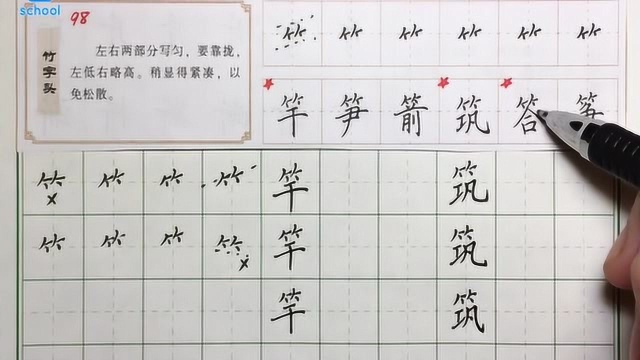 school
98
竹字头
左右两部分写匀,要靠拢,
左低右略高。稍显得紧凑,以
免松散。
⺮ ⺮ ⺮ ⺮ ⺮ ⺮
竿 笋 箭 筑 答
⺮ ⺮ ⺮ ⺮ 竿 筑
x
⺮ ⺮ ⺮ ⺮ 竿 筑
x
竿 筑